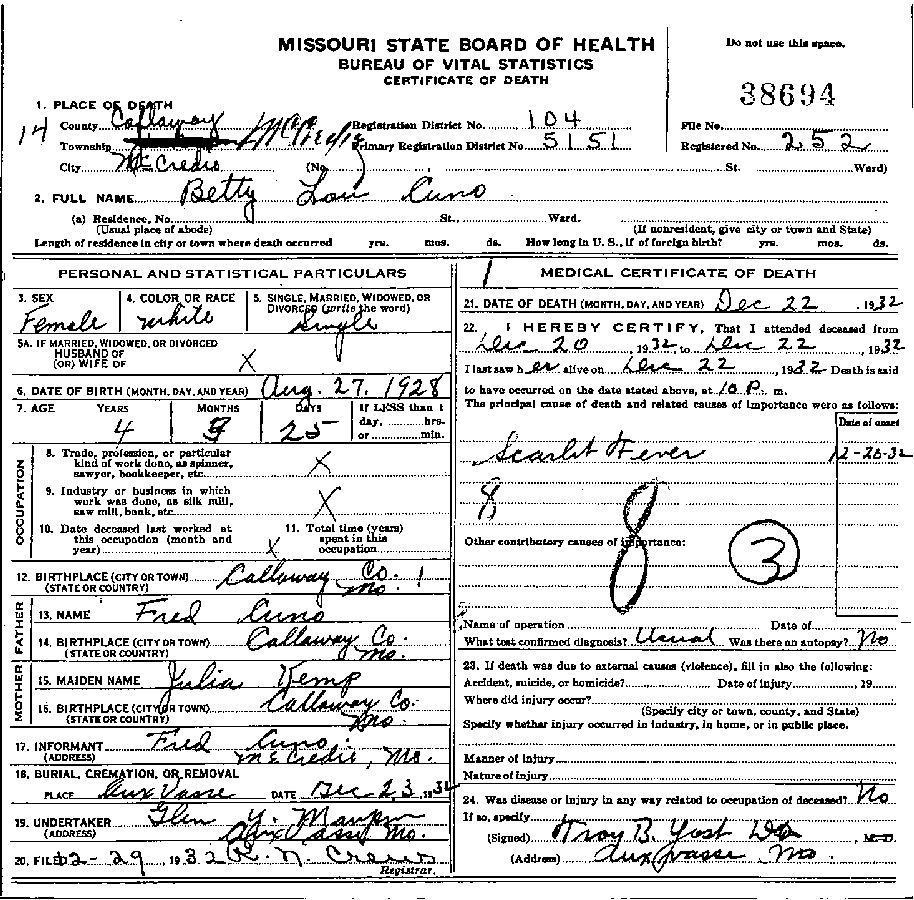 MISSOURI STATE BOARD OF HEALTH
BUREAU OF VITAL STATISTICS
CERTIFICATE OF DEATH
Do not use this space.
38694
1. PLACE OF DEATH
14 County Callaway Registration District No. 104 File No.
Township McCredie Primary Registration District No. 5151 Registered No. 252
City McCredie (No. St. Ward)
2. FULL NAME Betty Lou Cuno
(a) Residence, No. St., Ward.
(Usual place of abode) (If nonresident, give city or town and State)
Length of residence in city or town where death occurred yrs. mos. ds. How long in U. S., if of foreign birth? yrs. mos. ds.
PERSONAL AND STATISTICAL PARTICULARS
3. SEX 4. COLOR OR RACE 5. SINGLE, MARRIED, WIDOWED, OR
DIVORCED (write the word)
Female white Single
5A. IF MARRIED, WIDOWED, OR DIVORCED
HUSBAND OF
(OR) WIFE OF X
6. DATE OF BIRTH (MONTH, DAY, AND YEAR) Aug. 27. 1928
7. AGE YEARS MONTHS DAYS If LESS than 1
day, hrs.
or min.
4 25
OCCUPATION
8. Trade, profession, or particular
kind of work done, as spinner,
sawyer, bookkeeper, etc. X
9. Industry or business in which
work was done, as silk mill,
saw mill, bank, etc. X
10. Date deceased last worked at
this occupation (month and
year) X
11. Total time (years)
spent in this
occupation
12. BIRTHPLACE (CITY OR TOWN) Callaway Co. 1
(STATE OR COUNTRY) Mo.
FATHER
13. NAME Fred Cuno
14. BIRTHPLACE (CITY OR TOWN) Callaway Co.
(STATE OR COUNTRY) Mo.
MOTHER
15. MAIDEN NAME Julia Hemp
16. BIRTHPLACE (CITY OR TOWN) Callaway Co.
(STATE OR COUNTRY) Mo.
17. INFORMANT Fred Cuno
(ADDRESS) McCredie, Mo.
18. BURIAL, CREMATION, OR REMOVAL
PLACE Aux Vasse DATE Dec 23, 1932
19. UNDERTAKER Glen Y. Maupin
(ADDRESS) Aux Vasse Mo.
20. FILED 12-29 1932 R. N. Crews
Registrar.
1 MEDICAL CERTIFICATE OF DEATH
21. DATE OF DEATH (MONTH, DAY, AND YEAR) Dec 22, 1932
22. I HEREBY CERTIFY, That I attended deceased from
Dec 20, 1932 to Dec 22, 1932
I last saw her alive on Dec 22, 1932 Death is said
to have occurred on the date stated above, at 10 P. m.
The principal cause of death and related causes of importance were as follows:
Date of onset
Scarlet Fever 12-20-32
8 8 3
Other contributory causes of importance:
Name of operation Date of
What test confirmed diagnosis? Usual Was there an autopsy? No
23. If death was due to external causes (violence), fill in also the following:
Accident, suicide, or homicide? Date of injury , 19
Where did injury occur?
(Specify city or town, county, and State)
Specify whether injury occurred in industry, in home, or in public place.
Manner of injury
Nature of injury
24. Was disease or injury in any way related to occupation of deceased? No
If so, specify
(Signed) Troy B. Yost DO, M. D.
(Address) Aux Vasse Mo.